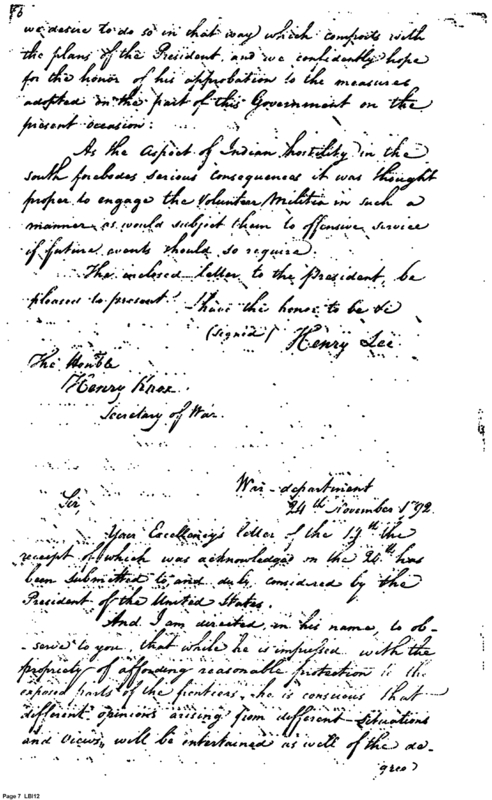 76
we desire to do so in that way which comports with
the plans of the President, and we confidently hope
for the honor of his approbation to the measures
adopted on the part of this Government on the
present occasion.
As the aspect of Indian hostility in the
south forebodes serious consequences it was thought
proper to engage the Volunteer Militia in such a
manner as would subject them to offensive service
if future events should so require.
The inclosed letter to the President, be
pleased to present. I have the honor to be &c
(signed) Henry Lee.
The Honble
Henry Knox.
Secretary of War.
War-department
24th November 1792.
Sir,
Your Excellency's letter of the the
receipt of which was acknowledged on the 24th has
been submitted to and duly considered by the
President of the United States.
And I am directed in his name, to ob-
-serve to you that while he is impressed with the
propriety of affording reasonable protection to the
exposed parts of the frontiers, he is conscious that
different opinions arising from different situations
and views, will be entertained as well of the de-
gree
Page 7 LBI12